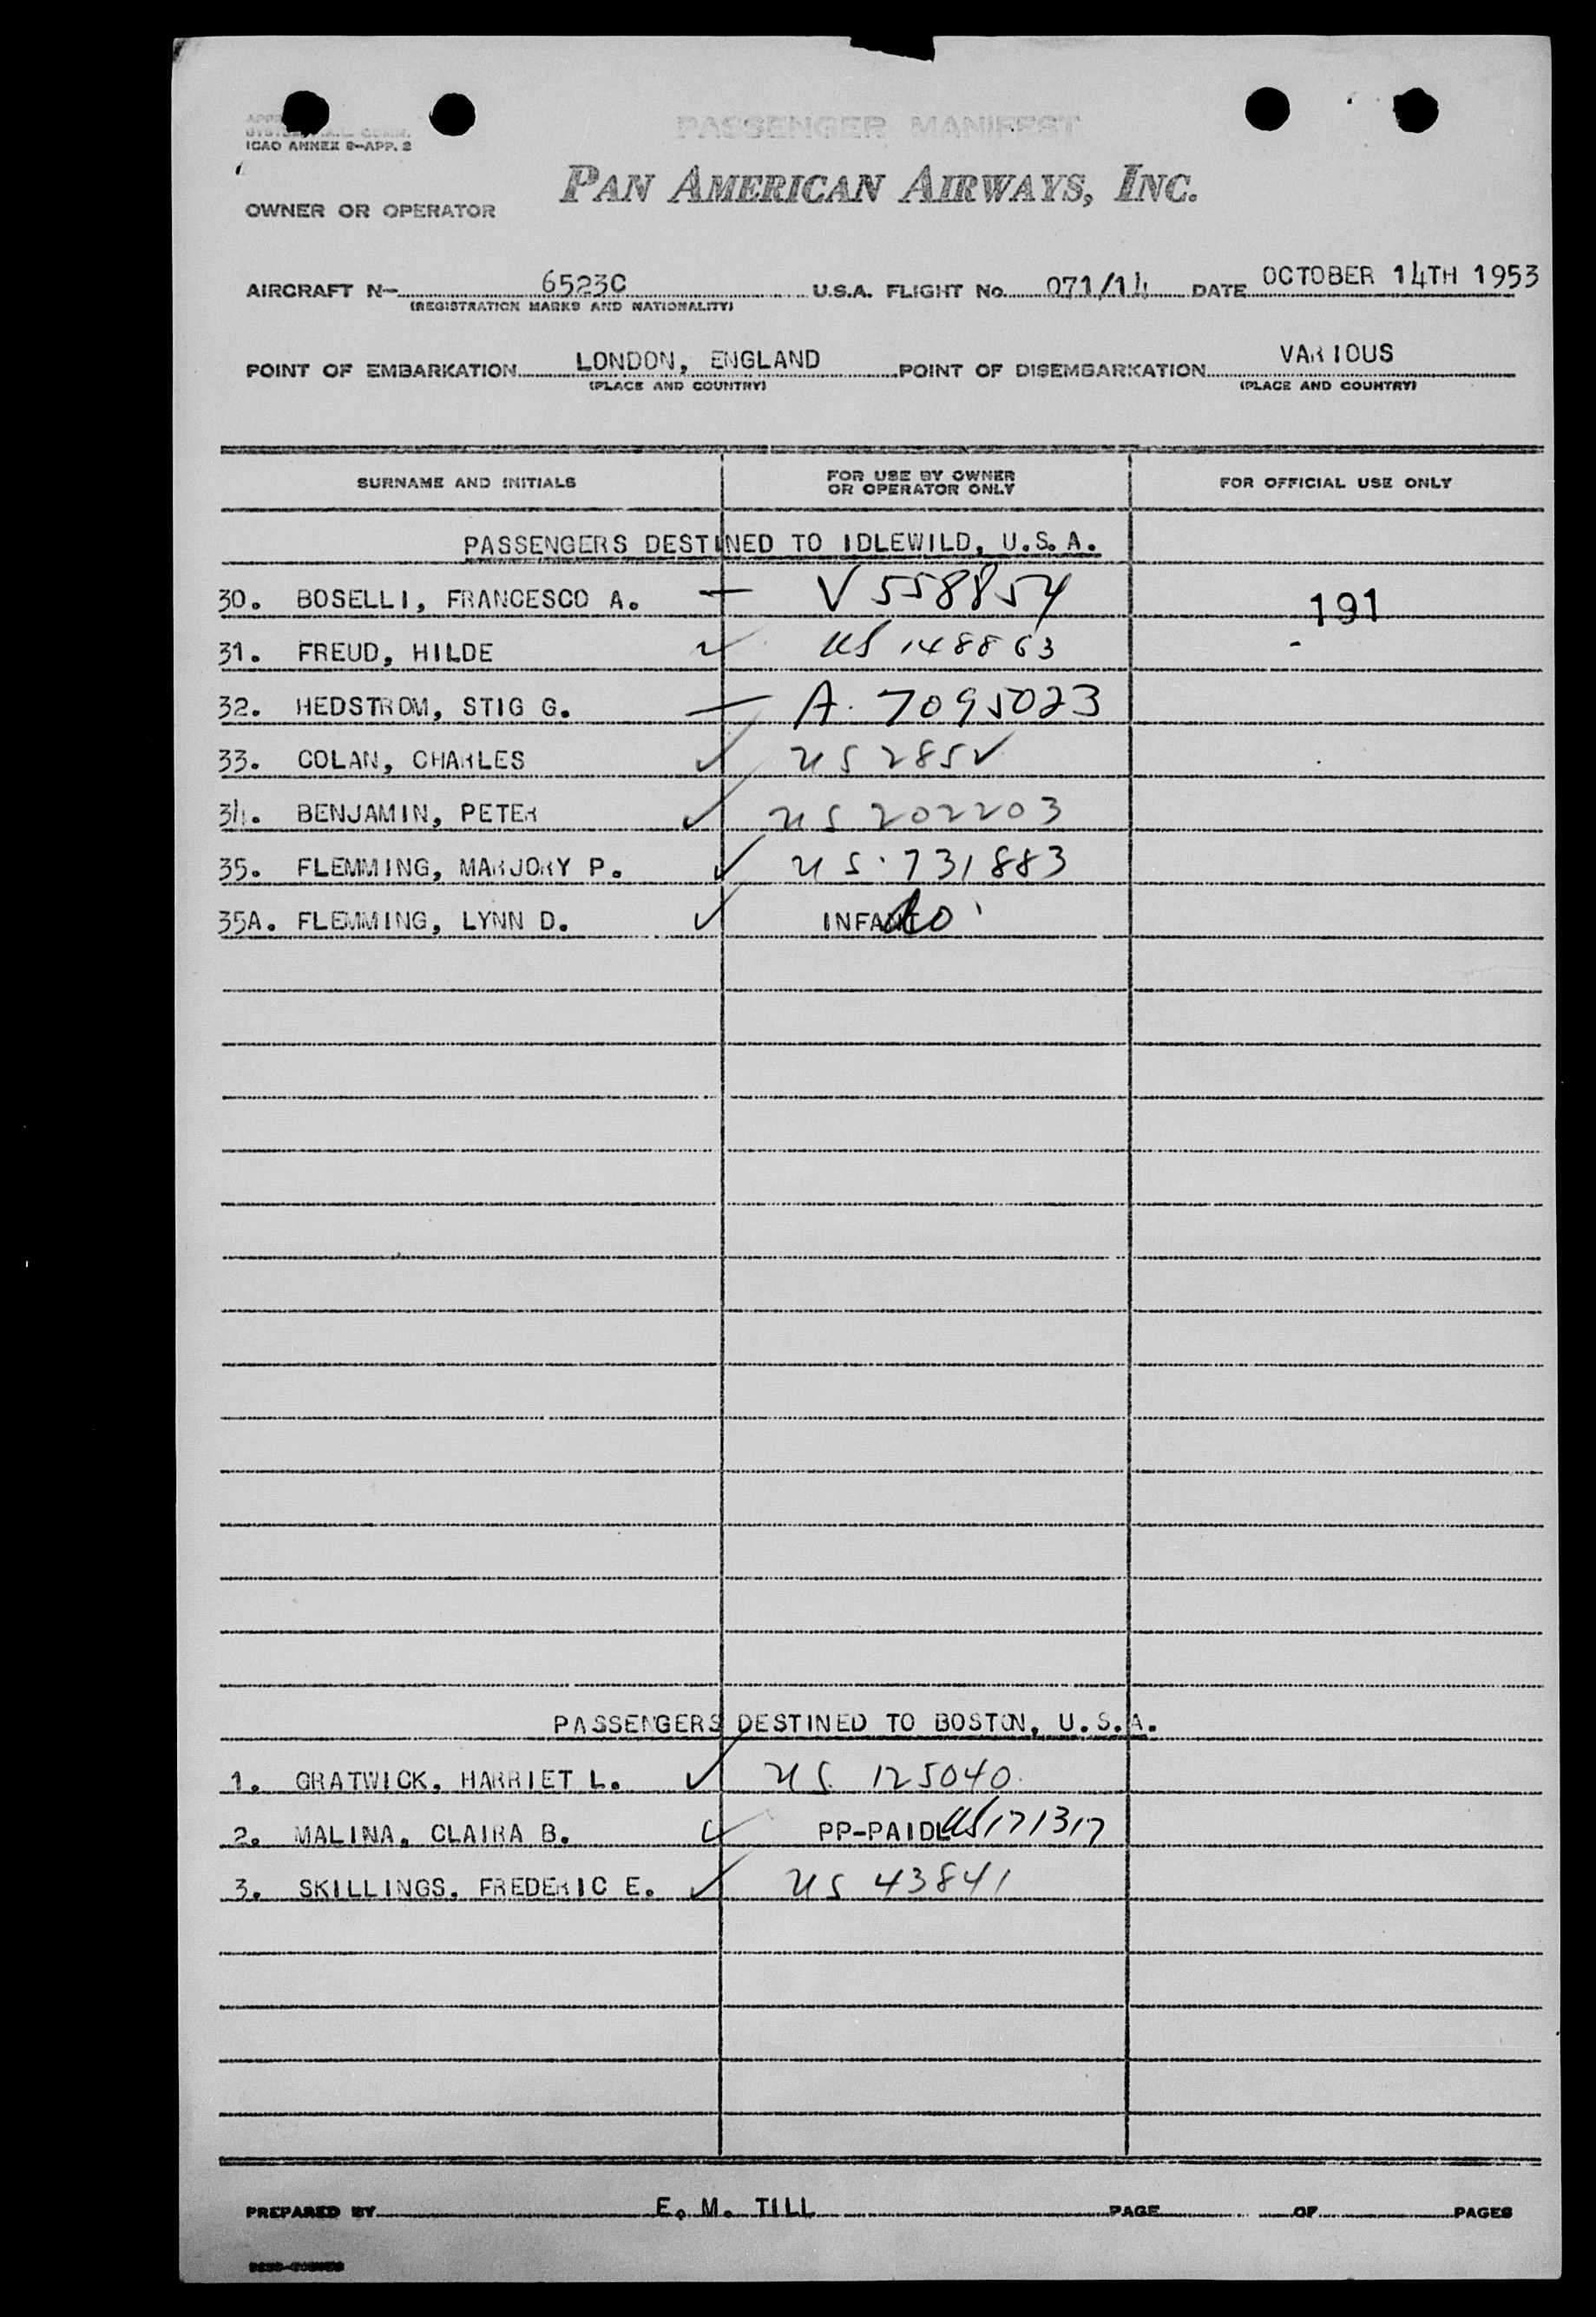 PASSENGER MANIFEST
ICAO ANNEX 9-APP. 2
PAN AMERICAN AIRWAYS, INC.
OWNER OR OPERATOR
AIRCRAFT N- 6523C U.S.A. FLIGHT No. 071/14 DATE OCTOBER 14TH 1953
(REGISTRATION MARKS AND NATIONALITY)
POINT OF EMBARKATION LONDON, ENGLAND POINT OF DISEMBARKATION VARIOUS
(PLACE AND COUNTRY) (PLACE AND COUNTRY)
SURNAME AND INITIALS FOR USE BY OWNER OR OPERATOR ONLY FOR OFFICIAL USE ONLY
PASSENGERS DESTINED TO IDLEWILD, U.S.A.
30. BOSELLI, FRANCESCO A. — V 558854 191
31. FREUD, HILDE ✓ US 148863
32. HEDSTROM, STIG G. — A. 7095023
33. COLAN, CHARLES ✓ US 2852
34. BENJAMIN, PETER ✓ US 202203
35. FLEMMING, MARJORY P. ✓ US. 731883
35A. FLEMMING, LYNN D. ✓ INFANT do
PASSENGERS DESTINED TO BOSTON, U.S.A.
1. GRATWICK, HARRIET L. ✓ US 125040
2. MALINA, CLAIRA B. ✓ PP-PAIDL US 171317
3. SKILLINGS, FREDERIC E. ✓ US 43841
PREPARED BY E. M. TILL PAGE OF PAGES